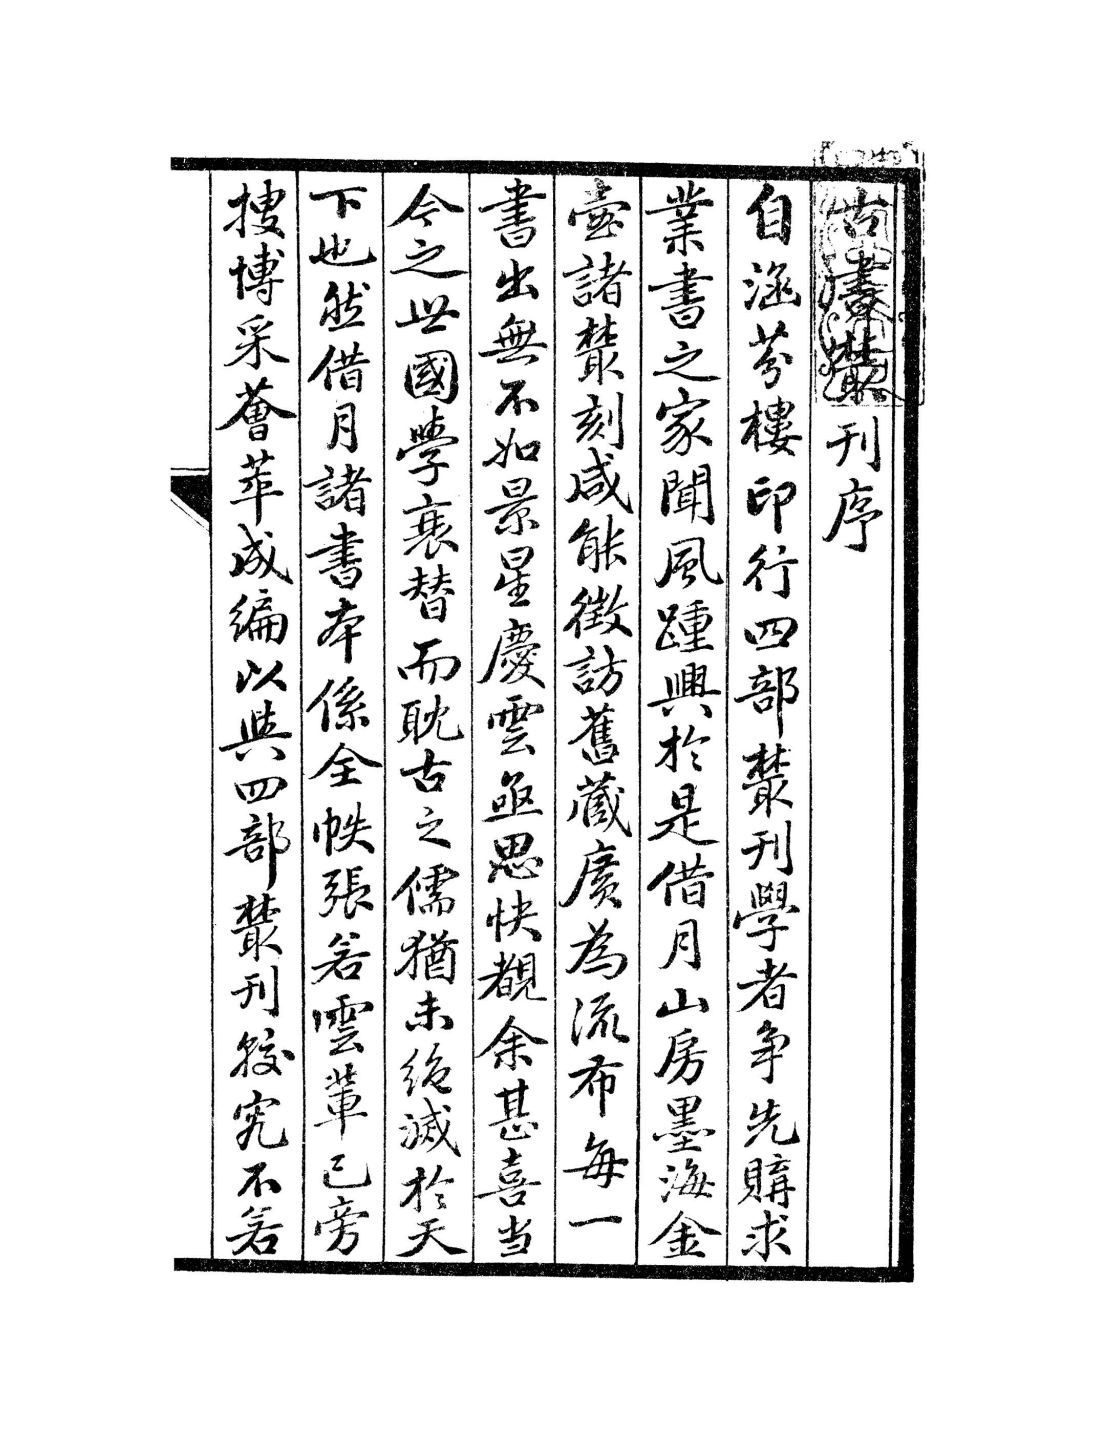 古書叢刊序
自涵芬樓印行四部叢刊學者争先購求
業書之家聞風踵興於是借月山房墨海金
壺諸叢刻咸能徴訪舊藏廣為流布每一
書出無不如景星慶雲亟思快覩余甚喜当
今之世國學衰替而耽古之儒猶未絶滅於天
下也然借月諸書本係全帙張若雲輩已旁
搜博采薈萃成編以與四部叢刊較究不若